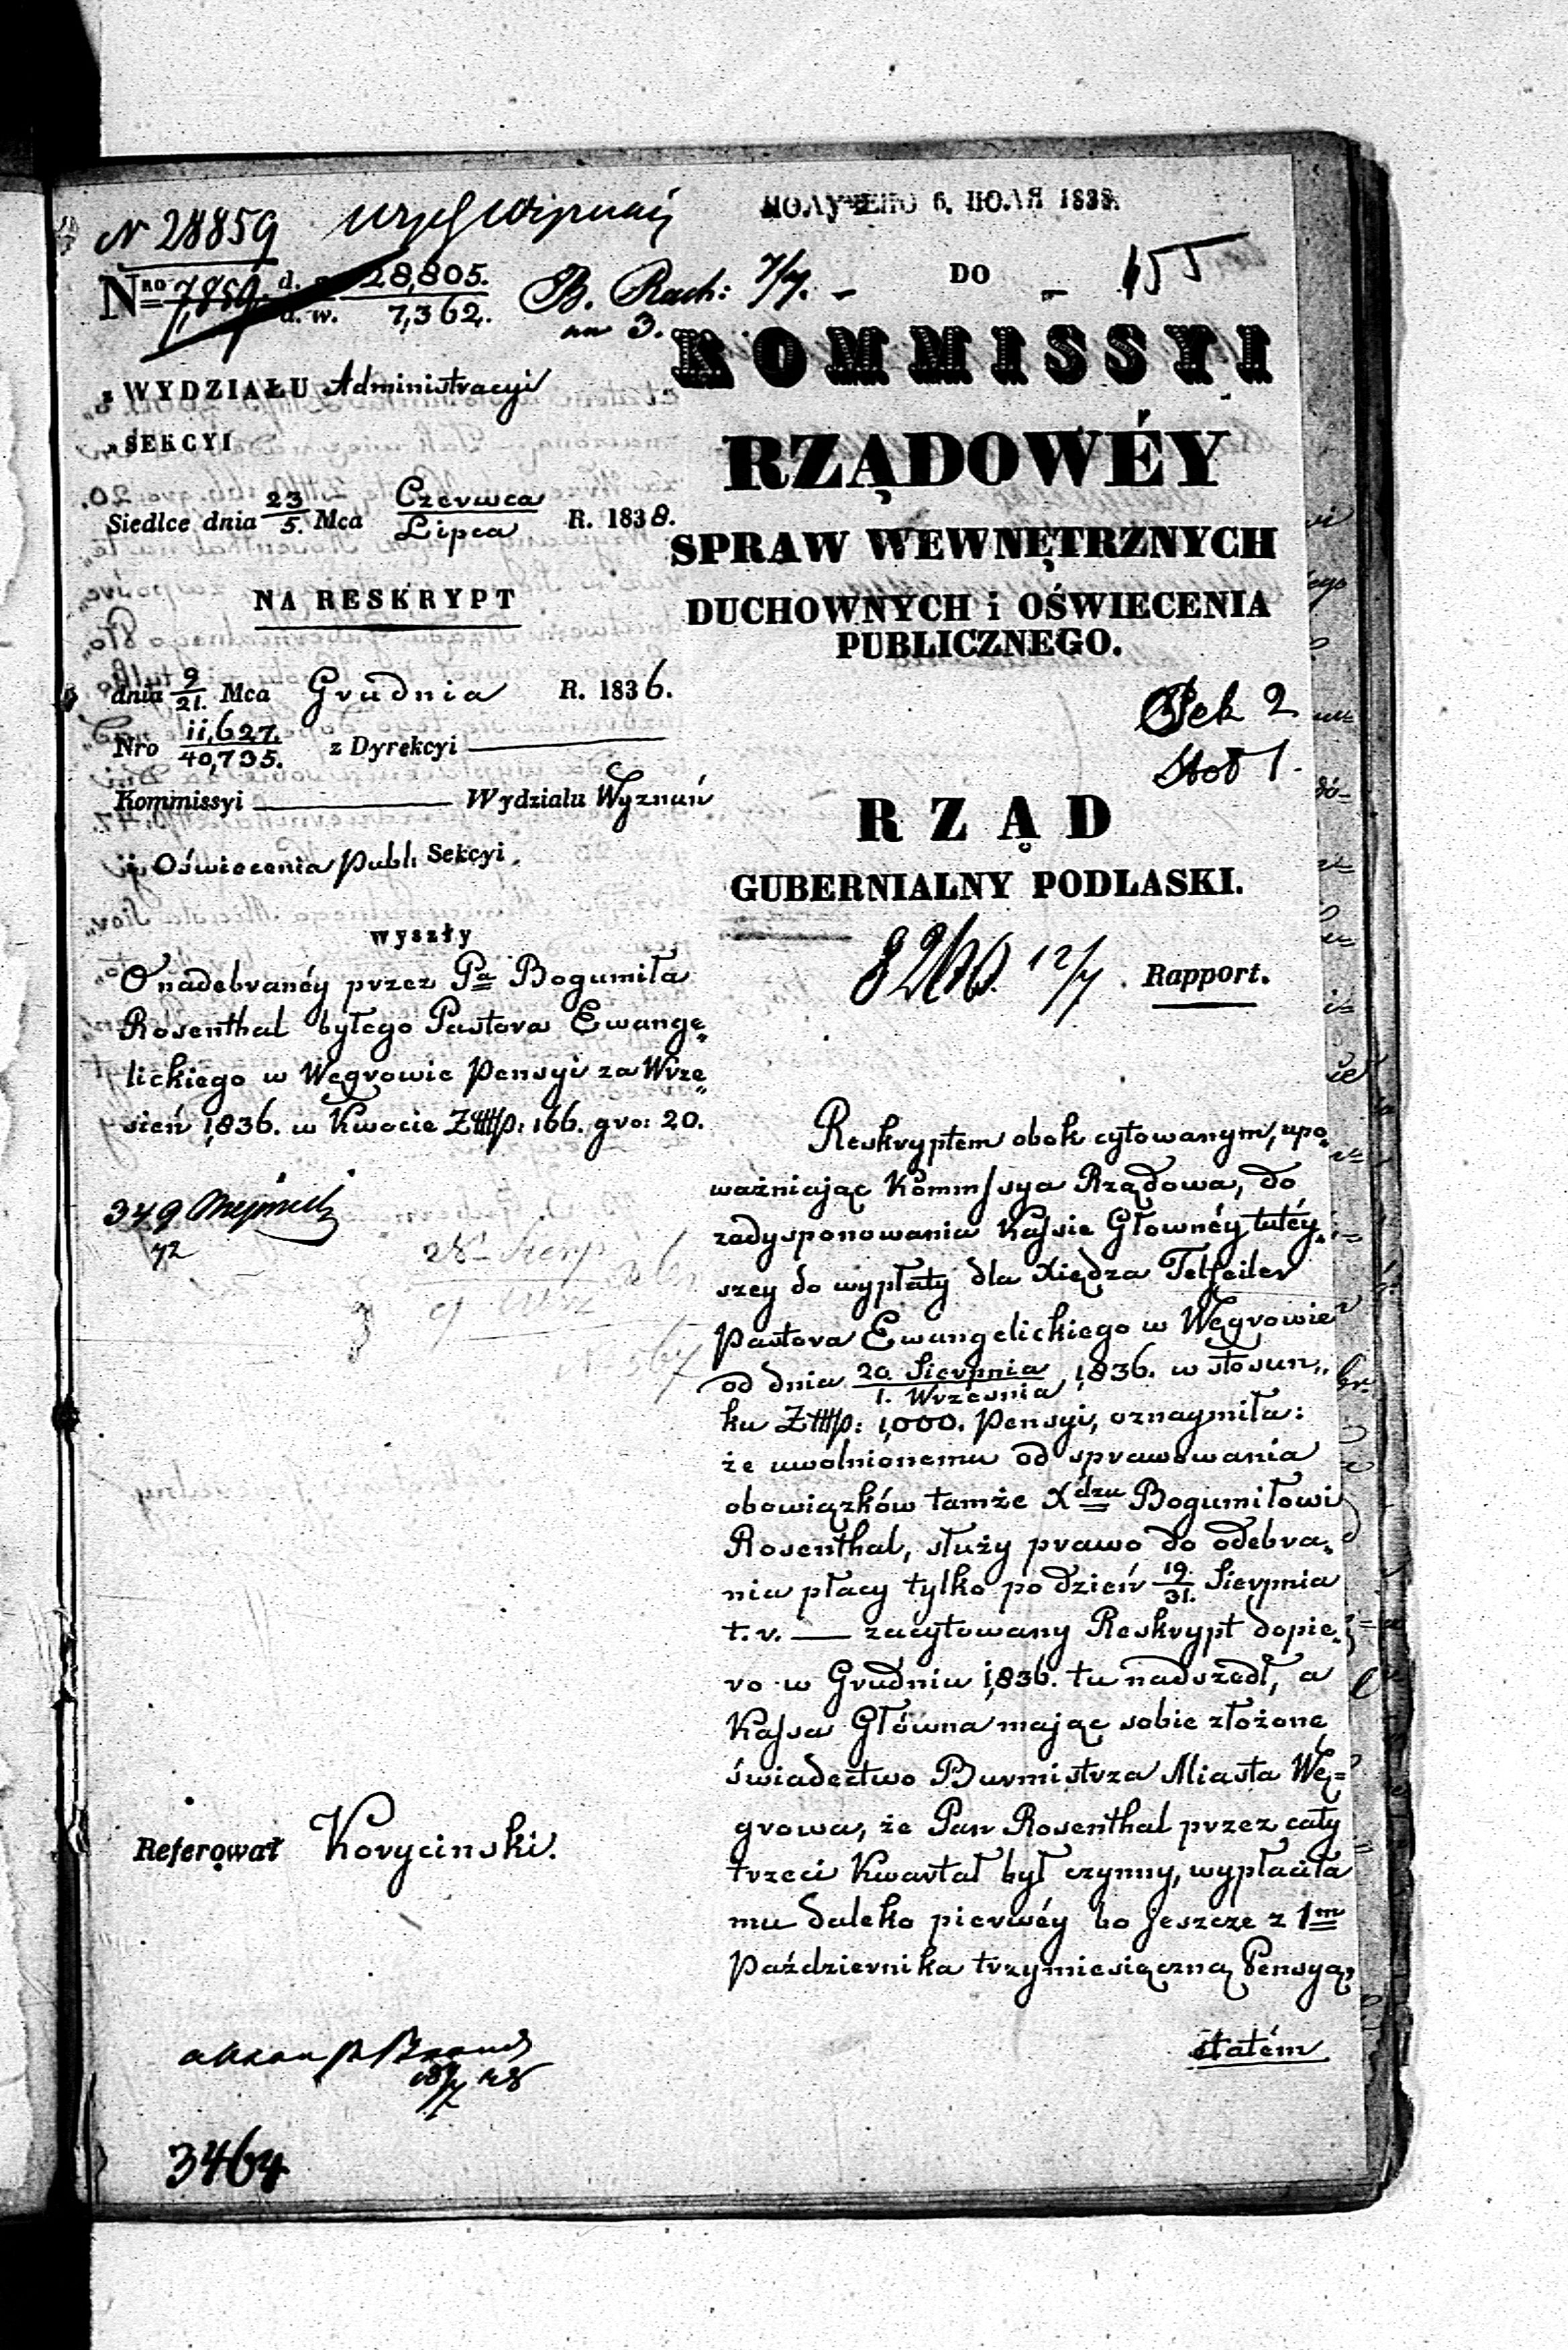 ПОЛУЧЕНО 6. ІЮЛЯ 1838.
N 28859
Nro 7,859. d. 28,805.
d. w. 7,362.
B. Rach: 7/7. –
na 3.
DO
155
z WYDZIAŁU Administracyi
„ SEKCYI
Siedlce dnia 23/5. Mca Czerwca/Lipca R. 1838.
NA RESKRYPT
dnia 9/21. Mca Grudnia R. 1836.
Nro 11,627./40,735. z Dyrekcyi
Kommissyi Wydziału Wyznań
i Oświecenia Publ: Sekcyi
wyszły
O nadebranéy przez Pa Bogumiła
Rosenthal byłego Pastora Ewange„
lickiego w Węgrowie Pensyi za Wrze„
sień 1836. w Kwocie Złłłłp: 166. gro: 20.
349
Referował Korycinski.
3464
KOMMISSYI
RZĄDOWÉY
SPRAW WEWNĘTRZNYCH
DUCHOWNYCH i OŚWIECENIA
PUBLICZNEGO.
Sek 2
Stoł 1.
RZĄD
GUBERNIALNY PODLASKI.
12/7. Rapport.
Reskryptem obok cytowanym, upo„
ważniając Kommissya Rządowa, do
zadysponowania Kassie Głownéy tutéy„
szey do wypłaty dla Xiędza Telfeiler
Pastora Ewangelickiego w Węgrowie
od dnia 20. Sierpnia/1. Wrzesnia 1836. w stosun„
ku Złłłłp: 1,000. Pensyi, oznaymiła:
że uwolnionemu od sprawowania
obowiązków tamże Xdzu Bogumiłowi
Rosenthal, służy prawo do odebra„
nia płacy tylko po dzień 19./31. Sierpnia
t. r. — zacytowany Reskrypt dopie„
ro w Grudniu 1836. tu nadszedł, a
Kassa Główna mając sobie złożone
świadectwo Burmistrza Miasta Wę=
growa, że Pan Rosenthal przez cały
trzeci Kwartał był czynny, wypłaciła
mu daleko pierwéy bo Jeszcze z 1m
Października trzymiesięczną Pensyą,
zatém